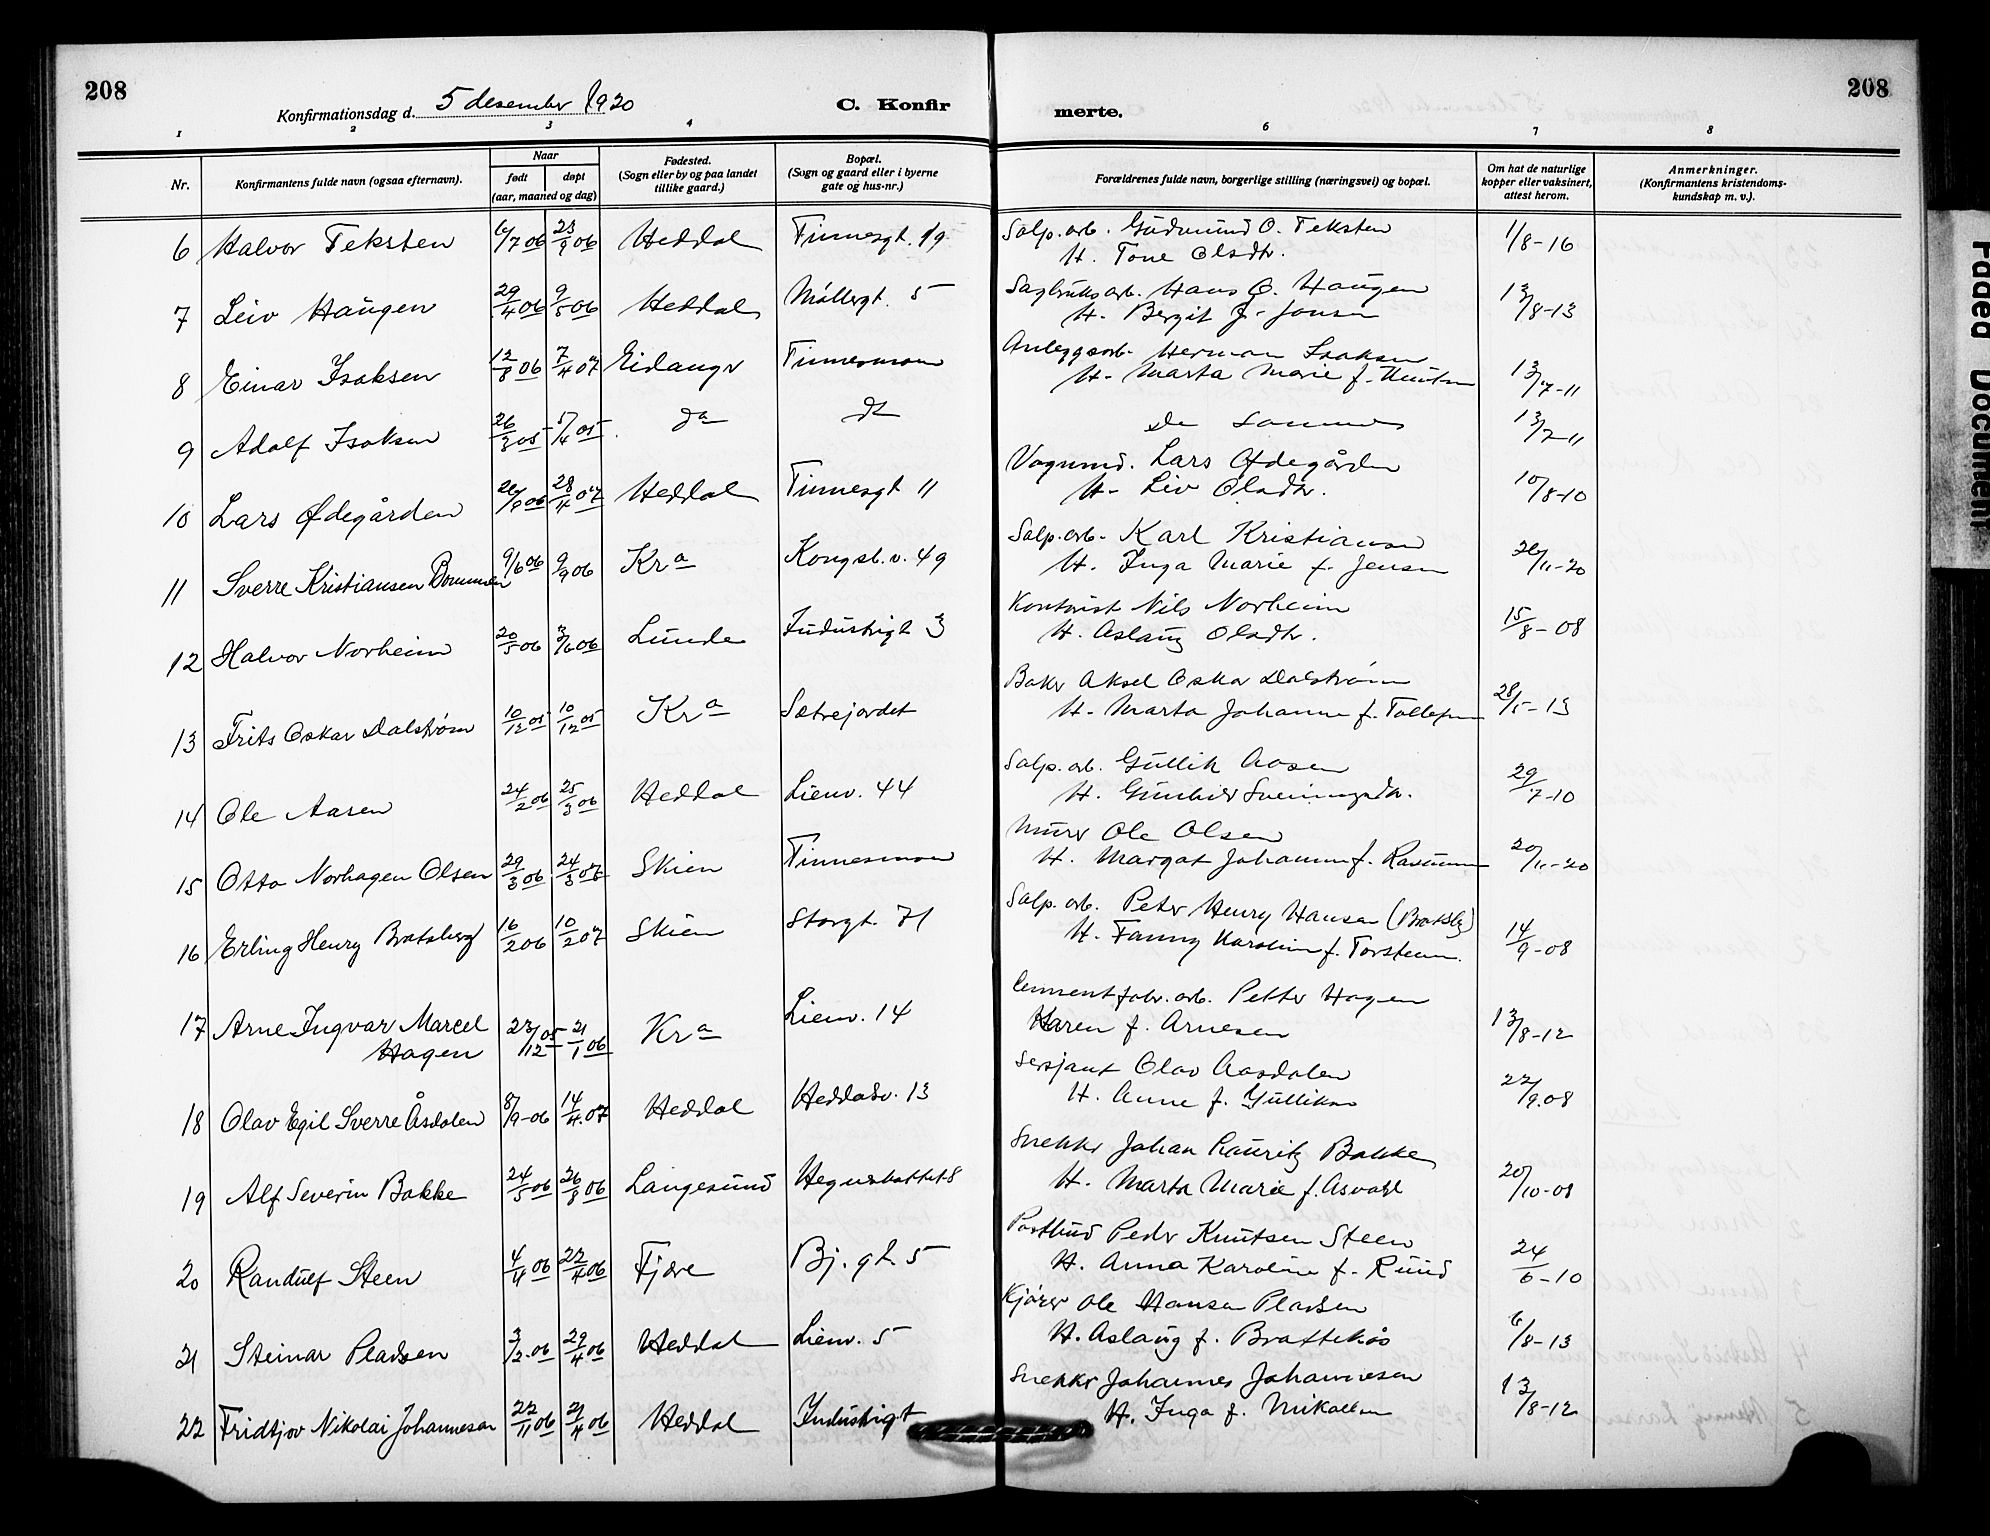 208
Konfirmationsdag d. 5 desember 1920
C. Konfir
merte.
208
1 2 3 4 6 7 8
Nr.
Konfirmantens fulde navn (ogsaa efternavn).
Naar
født døpt
(aar, maaned og dag)
Fødested.
(Sogn eller by og paa landet
tillike gaard.)
Bopæl.
(Sogn og gaard eller i byerne
gate og hus-nr.)
Forældrenes fulde navn, borgerlige stilling (næringsvei) og bopæl.
Om hat de naturlige
kopper eller vaksinert,
attest herom.
Anmerkninger.
(Konfirmantens kristendoms-
kundskap m. v.).
6 Halvor Teksten 6/7 06 23/9 06 Heddal Tinnesgt. 19 Salp. arb. Gudmund O. Teksten 1/8-16
H. Tone Olsdtr.
7 Leiv Haugen 29/4 06 9/5 06 Heddal Møllergt. 5 Sagbruksarb. Hans O. Haugen 13/8-13
H. Bergit f. Jonsen
8 Einar Isaksen 12/8 06 7/4 07 Eidangr Tinnesmoen Anleggsarb. Herman Isaksen 13/7-11
H. Marta Marie f. Knutsen
9 Adolf Isaksen 26/3 05 5/4 05 da do De samme 13/7-11
10 Lars Ødegården 26/9 06 28/4 07 Heddal Tinnesgt 11 Vognmd. Lars Ødegården 10/8-10
H. Liv Olsdtr.
11 Sverre Kristiansen Bommen 9/6 06 9/9 06 Kra Kongsb.v. 49 Salp. arb. Karl Kristiansen 26/11-20
H. Inga Marie f. Jensen
12 Halvor Norheim 20/5 06 3/6 06 Lunde Industrigt 3 Kontorist Nils Norheim 15/8-08
H. Aslaug Olsdtr.
13 Frits Oskar Dalstrøm 10/12 05 10/12 05 Kra Sætrejordet Baker Aksel Oskar Dalstrøm 28/5-13
H. Marta Johanne f. Tollefsen
14 Ole Aasen 24/2 06 25/3 06 Heddal Lienv. 44 Salp. arb. Gullik Aasen 29/7-10
H. Gunhild Sveinungsdtr.
15 Otto Norhagen Olsen 29/3 06 24/3 07 Skien Tinnesmoen Murer Ole Olsen 20/11-20
H. Margat Johanne f. Rasmussen
16 Erling Henry Bratsberg 16/2 06 10/2 07 Skien Storgt. 71 Salp. arb. Peter Henry Hansen (Bratsbg) 14/9-08
H. Fanny Karoline f. Torstensen.
17 Arne Ingvar Marcel 23/12 05 21/1 06 Kra Lienv. 14 Cementfabr. arb. Petter Hagen 13/8-12
Hagen Karen f. Arnesen
18 Olav Egil Sverre Åsdalen 8/9-06 14/4.07 Heddal Heddalsv. 13 Sersjant Olav Aasdalen 22/9.08
H. Anne f. Gulliksen
19 Alf Severin Bakke 24/5 06 26/8 06 Langesund Hegnabakket 8 Snekker Johan Lauritz Bakke 20/10-08
H. Marta Marie f. Asvall
20 Randulf Steen 4/4 06 22/4 06 Fjære Bj. gt. 5 Postbud Peder Knutsen Steen 24/6-10
H. Anna Karoline f. Ruud
21 Steinar Pladsen 3/2.06 29/4 06 Heddal Lienv. 5 Kjører Ole Hansen Pladsen 6/8-13
H. Aslaug f. Brattekås
22 Fridtjov Nikolai Johannesen 22/11 06 21/4 06 Heddal Industrigt Snekker Johannes Johannesen 13/8-12
H. Inga f. Mikaelsen